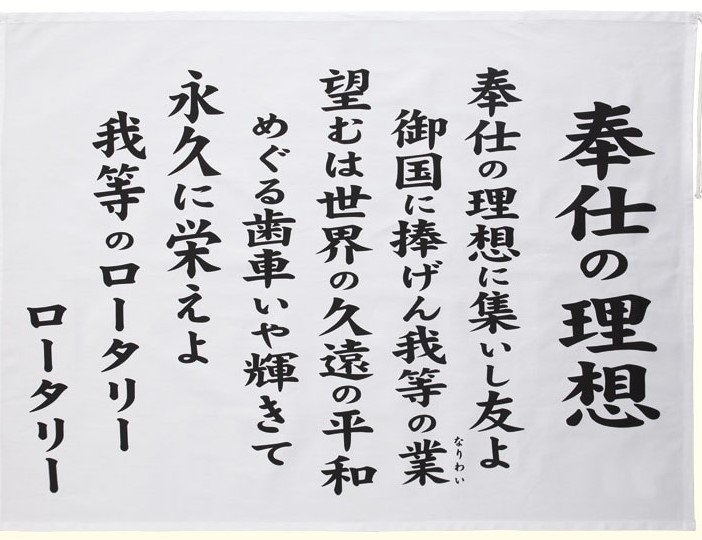 奉仕の理想
奉仕の理想に集いし友よ
御国に捧げん我等の業
なりわい
望むは世界の久遠の平和
めぐる歯車いや輝きて
永久に栄えよ
我等のロータリー
ロータリー